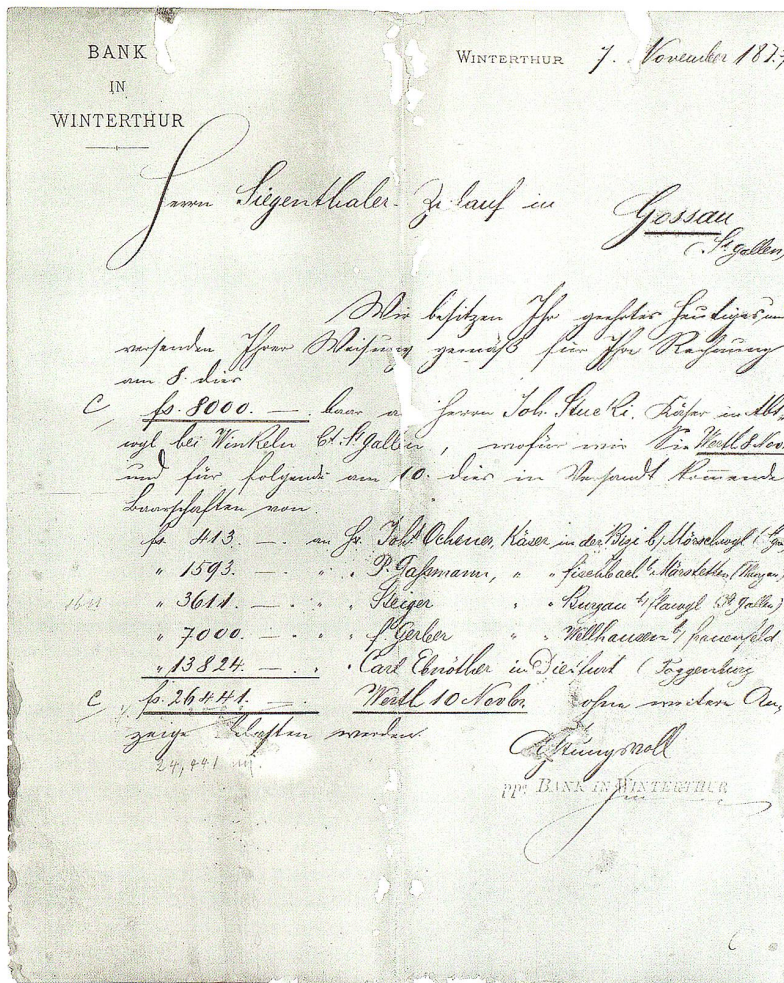 BANK
IN
WINTERTHUR
WINTERTHUR 7. November 187
Herrn Siegenthaler- in Gossau
(St. gallen)
Wir besitzen Ihr geehrtes heutiges,
versenden Ihrer Weisung gemäß für Ihre Rechnung
am 8. dies
C fs. 8000. — baar a Herrn Joh. Stucki, Käser in Abt
wyl bei Winkeln Ct. St. Gallen, wofür wir Sie Werth 8 Nov.
und für folgende am 10. dies in Versandt kommende
Baarschaften von
fs. 413. — . an Hr. Ochener, Käser in der b/ Mörschwyl
" 1593. — . " . P. Gaßmann, " " Fischbach b/ Märstetten
" 3611. — . " " Steiger " " Burgau b/ Flawyl (St. Gallen)
" 7000. — . " " Gerber " " Wellhausen b/ Frauenfeld
" 13824. — . " Carl Ebnöther in Dietfurt ( Toggenburg
C fs. 26441. — . Werth 10 Novbr. ohne weitere An,
zeige belasten werden.
24,441
Achtungsvoll
ppa BANK IN WINTERTHUR